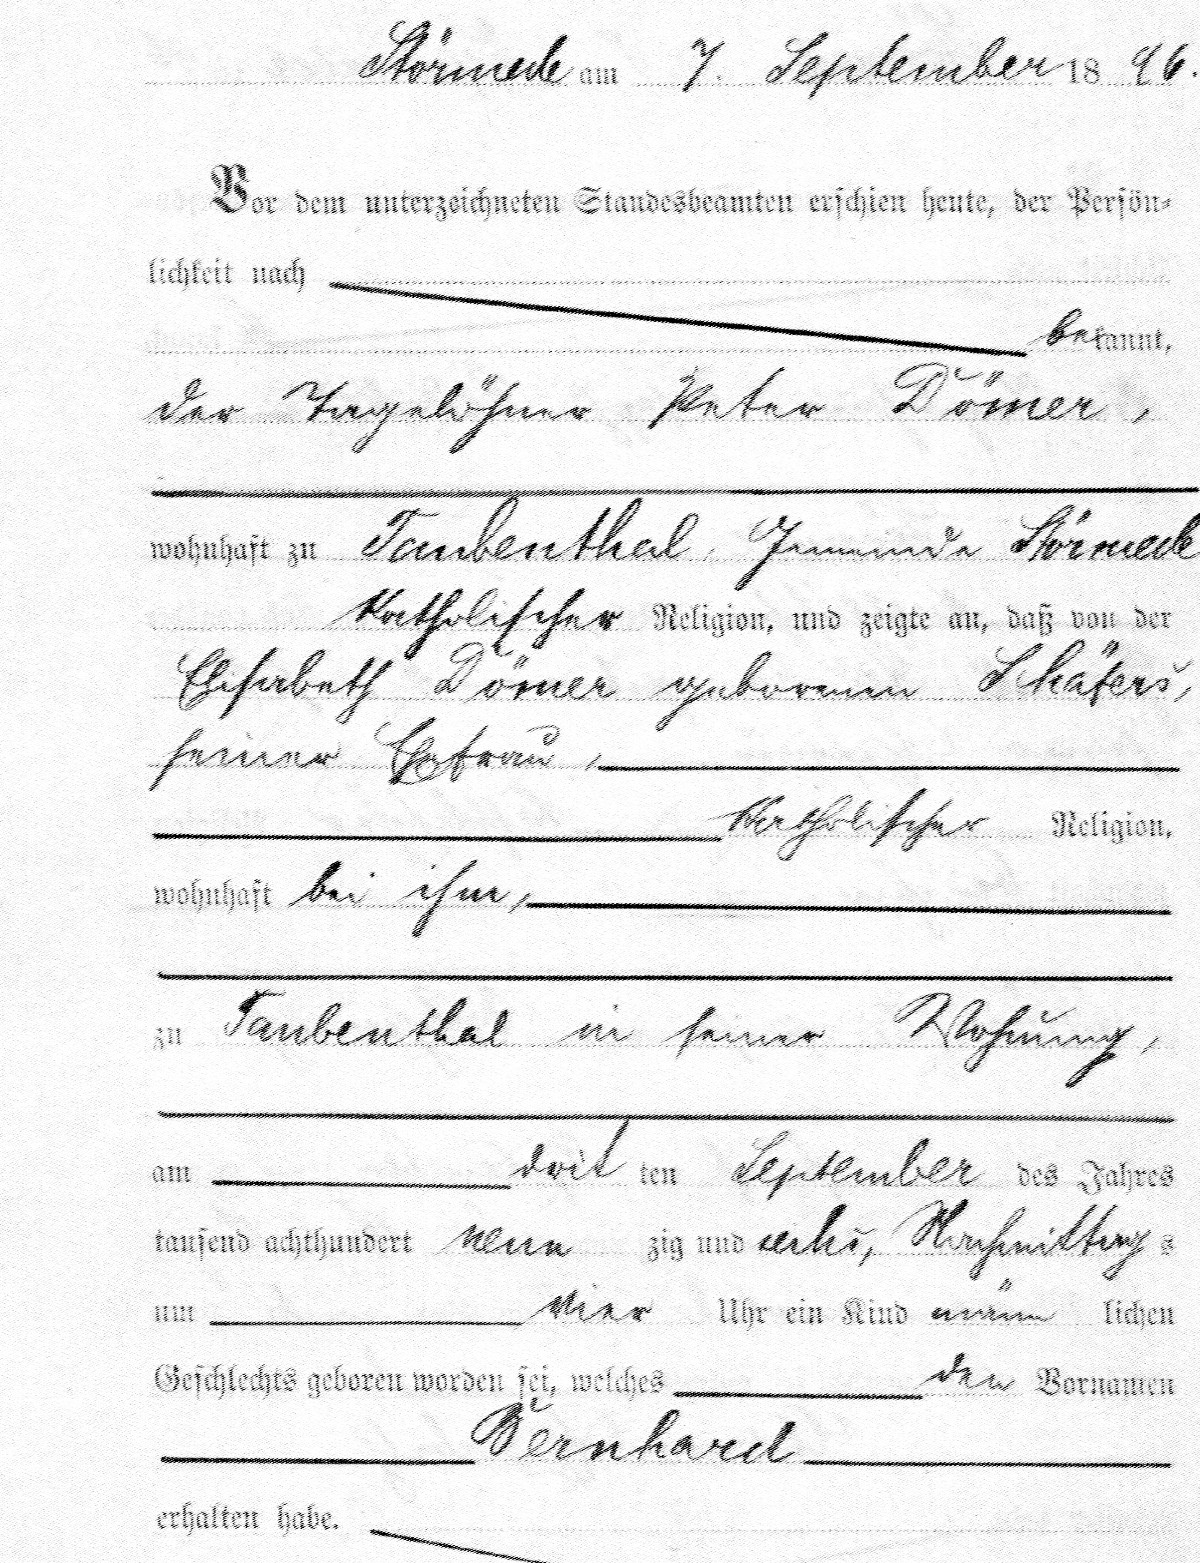 Störmede am 7. September 1896.
Vor dem unterzeichneten Standesbeamten erschien heute, der Persön-
lichkeit nach
bekannt,
der Tagelöhner Peter Dömer,
wohnhaft zu Taubenthal, Gemeinde Störmede
katholischer Religion, und zeigte an, daß von der
Elisabeth Dömer geborenen Schäfers,
seiner Ehefrau,
katholischer Religion,
wohnhaft bei ihm,
zu Taubenthal in seiner Wohnung,
am dritten September des Jahres
tausend achthundert neunzig und sechs, Nachmittags
um vier Uhr ein Kind männlichen
Geschlechts geboren worden sei, welches den Vornamen
Bernhard
erhalten habe.